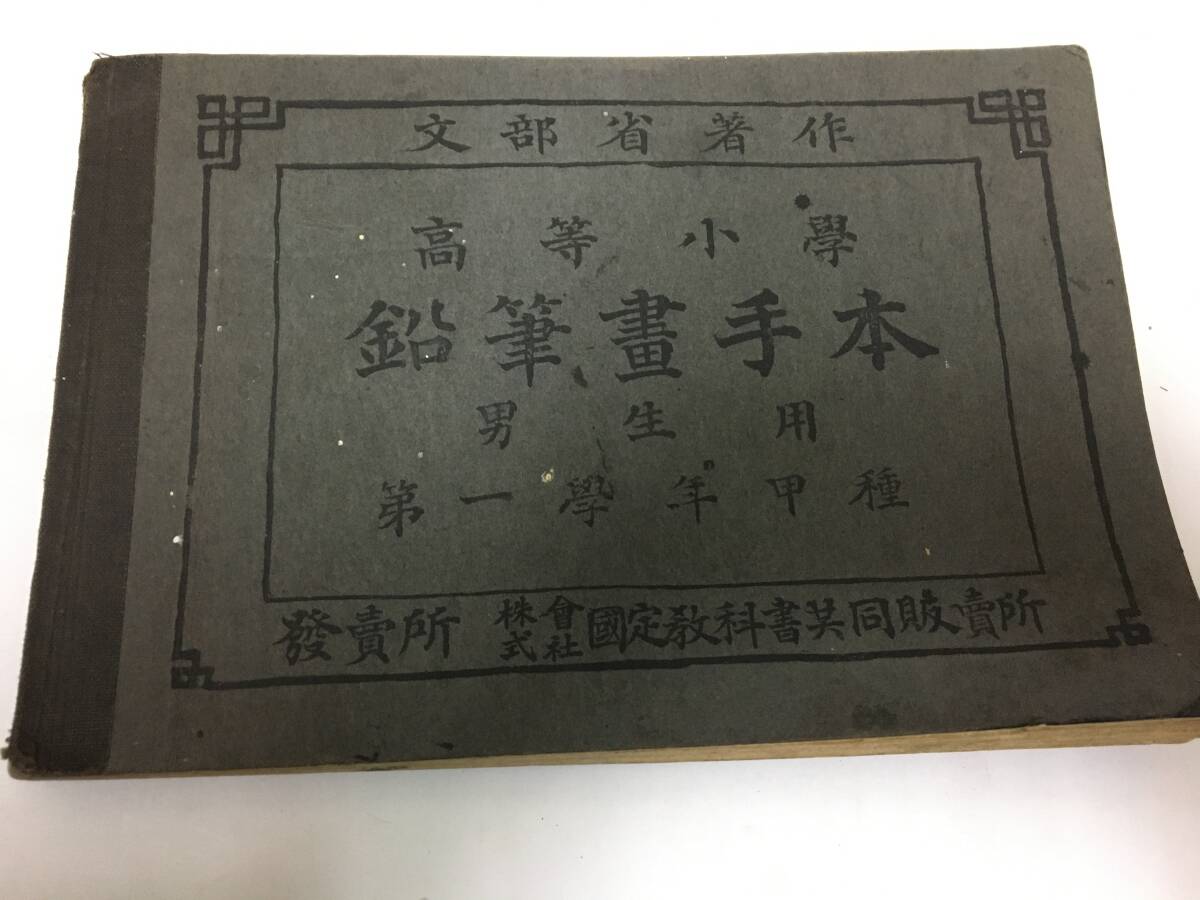 文部省著作
高等小學
鉛筆畫手本
男生用
第一學年甲種
發賣所 株式會社國定敎科書共同販賣所